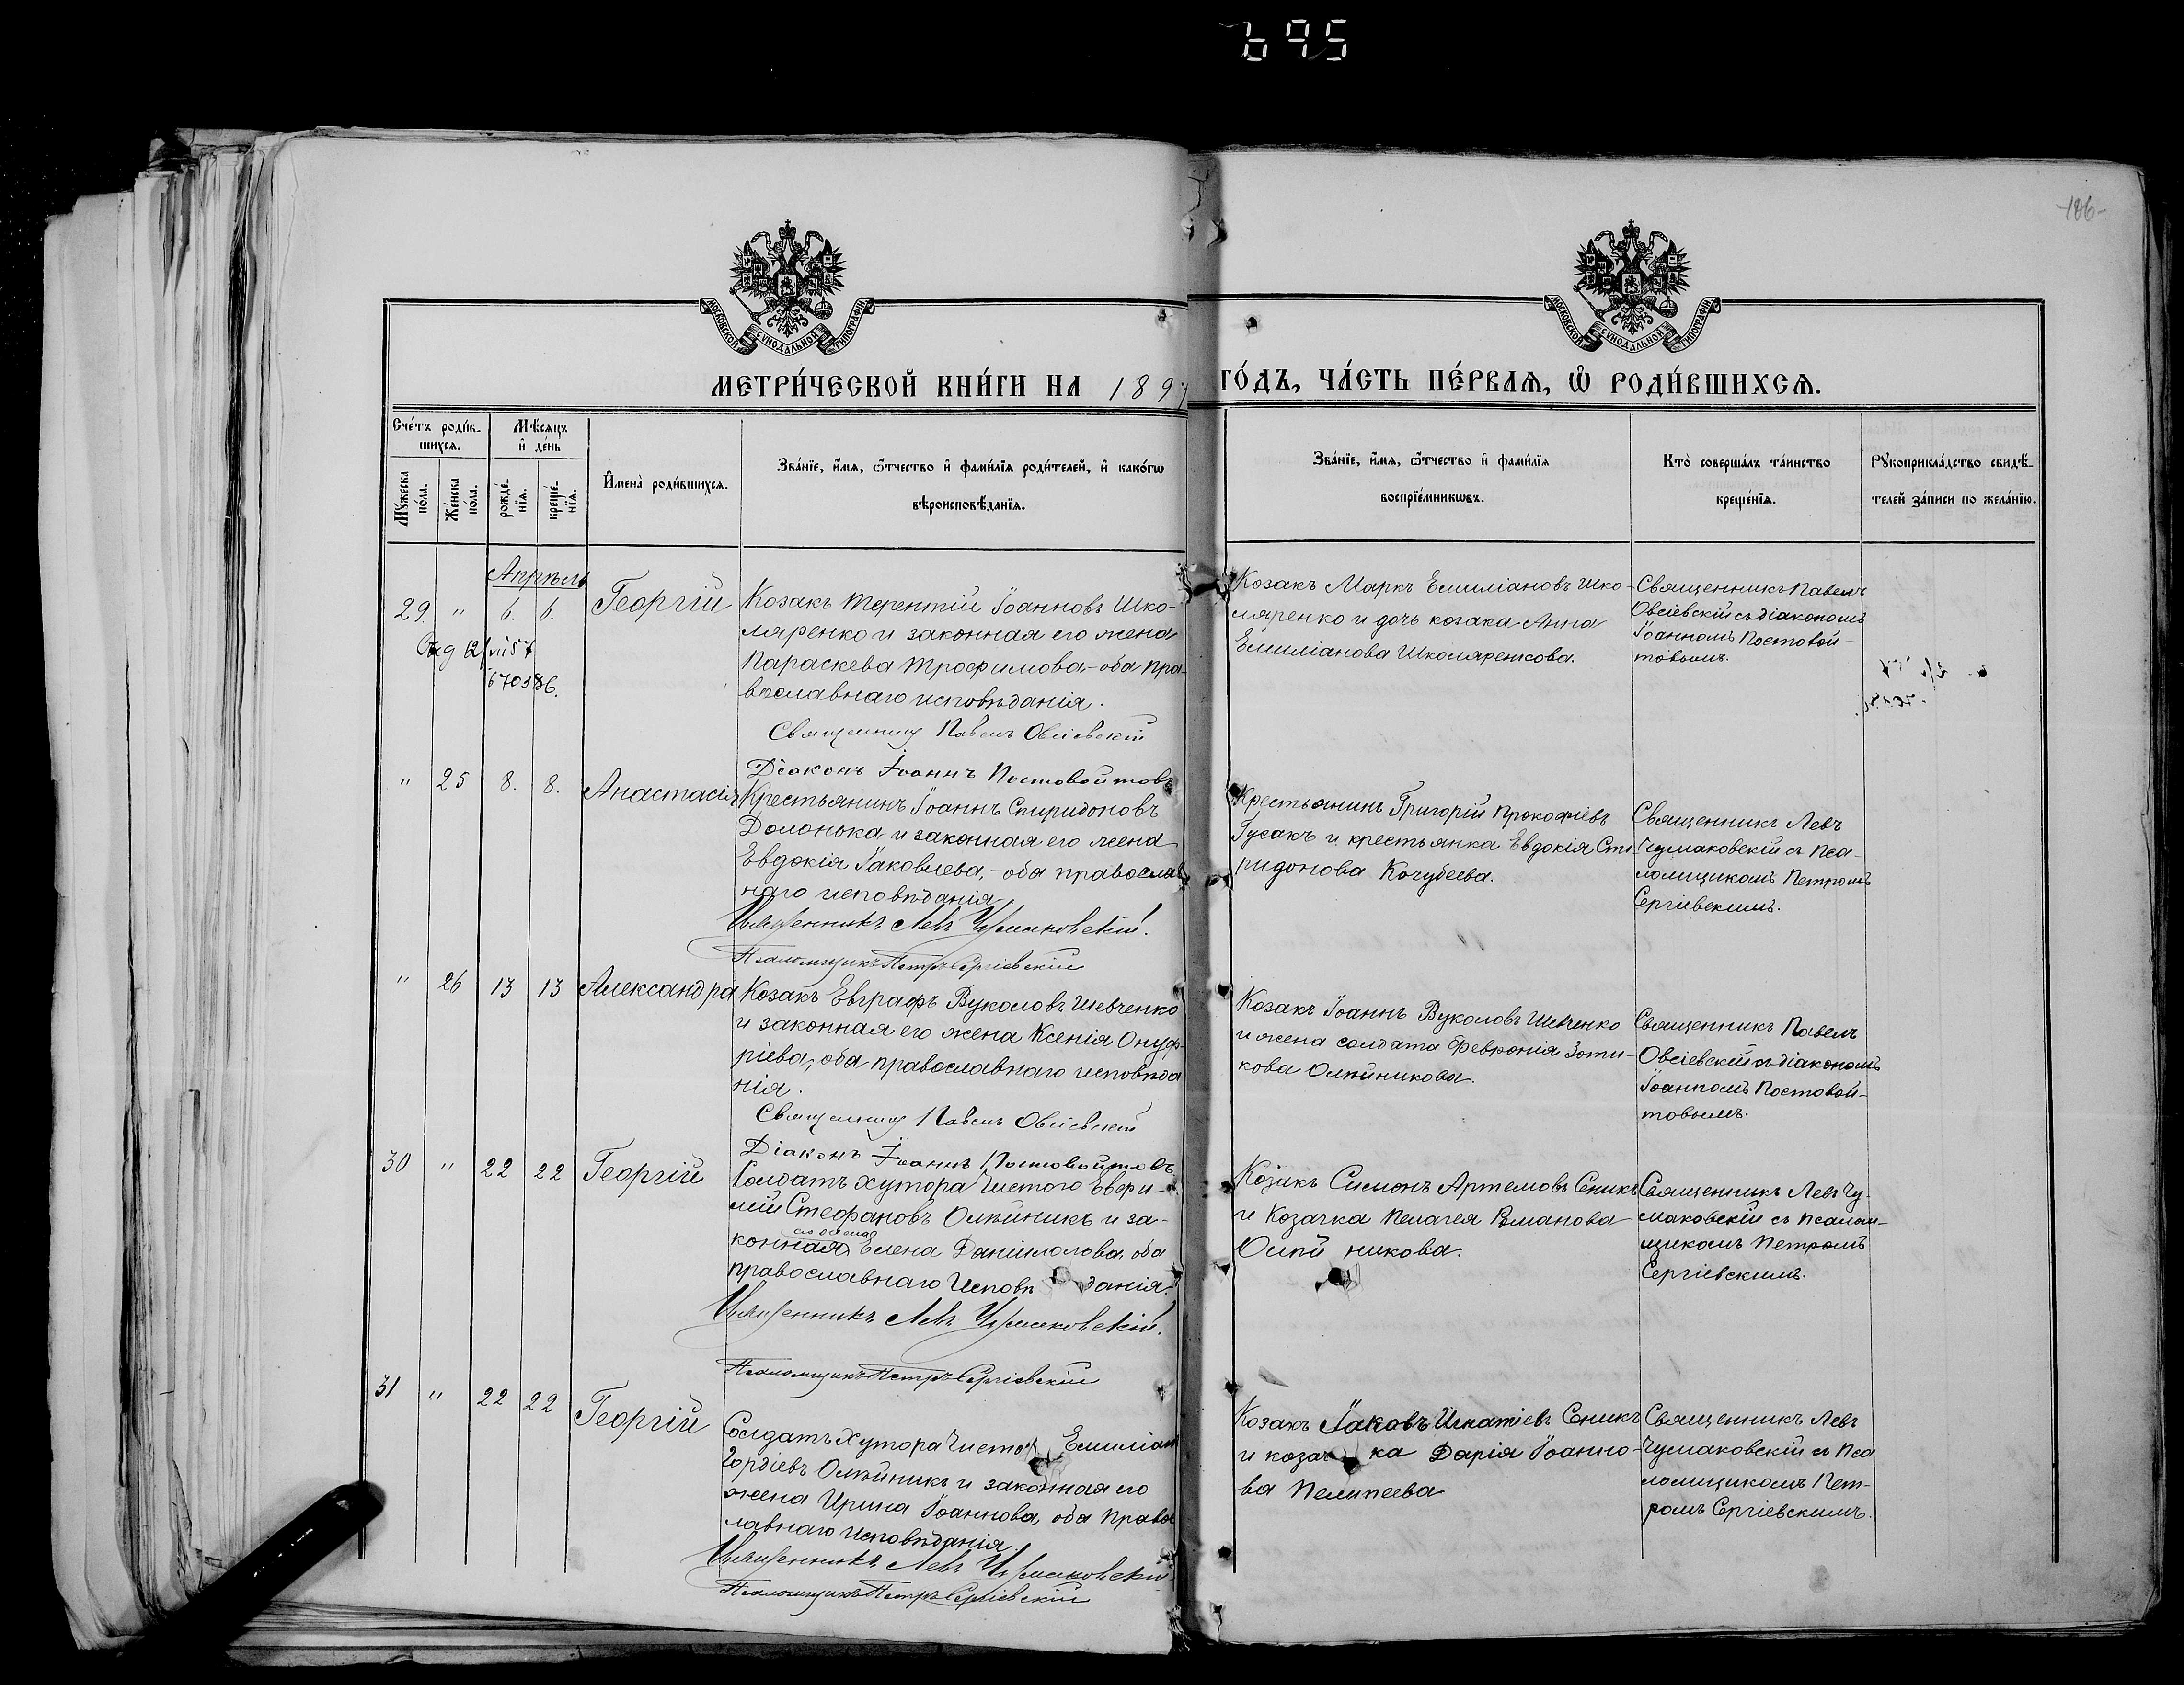 695
-186-
МОСКОВСКОЙ СѴНОДАЛЬНОЙ ТИПОГРАФІИ
МОСКОВСКОЙ СѴНОДАЛЬНОЙ ТИПОГРАФІИ
МЕТРИ́ЧЕСКОЙ КНИ́ГИ НА 1897 ГО́ДЪ, ЧА́СТЬ ПЕ́РВАЯ, Ѡ РОДИ́ВШИХСЯ.
Сче́тъ роди́в-
шихся.
Мꙋжеска по́ла.
Же́нска по́ла.
Мѣ́сяцъ
и де́нь
рожде́-
нїя.
креще́-
нїя.
Имена̀ роди́вшихся.
Зва́нїе, и́мя, ѻ́тчество и фами́лїя роди́телей, и како́гѡ
вѣроисповѣ́данїя.
Зва́нїе, и́мя, ѻ́тчество и фами́лїя
воспрїе́мникѡвъ.
Кто̀ соверша́лъ та́инство
креще́нїя.
Рꙋкоприкла́дство свидѣ́-
телей за́писи по жела́нїю.
Апрѣль
29. " 6. 6. Георгій
Козакъ Терентій Іоанновъ Шко-
ляренко и законная его жена
Параскева Трофимова,- оба пра-
вославнаго исповѣданія.
Священникъ Павелъ Овсіевскій
Діаконъ Іоаннъ Постовойтовъ
Козакъ Маркъ Емиліановъ Шко-
ляренко и дочь козака Анна
Емиліанова Школяренкова.
Священникъ Павелъ
Овсіевскій съ діакономъ
Іоанномъ Постовой-
товымъ.
" 25 8. 8. Анастасія
Крестьянинъ Іоаннъ Спиридоновъ
Долонька и законная его жена
Евдокія Іаковлева,- оба православ
наго исповѣданія.
Священникъ Левъ Чумаковскій.
Псаломщикъ Петръ Сергіевскій
Крестьянинъ Григорій Прокофіевъ
Гусакъ и крестьянка Евдокія Спи-
ридонова Кочубеева.
Священникъ Левъ
Чумаковскій съ Пса-
ломщикомъ Петромъ
Сергіевскимъ.
" 26 13 13 Александра
Козакъ Евграфъ Вуколовъ Шевченко
и законная его жена Ксенія Онуф-
ріева, оба православнаго исповѣда
нія.
Священникъ Павелъ Овсіевскій
Діаконъ Іоаннъ Постовойтовъ
Козакъ Іоаннъ Вуколовъ Шевченко
и жена солдата Февронія Зоти-
кова Олѣйникова.
Священникъ Павелъ
Овсіевскій съ діакономъ
Іоанномъ Постовой-
товымъ.
30 " 22 22 Георгій
Солдатъ хутора Чистого Евфи-
мій Стефановъ Олѣйникъ и за-
его жена
конная Елена Даніилолова, оба
православнаго Исповѣданія.
Священникъ Левъ Чумаковскій.
Псаломщикъ Петръ Сергіевскій
Козакъ Симонъ Артемовъ Сеникъ
и Козачка Пелагея Романова
Олѣйникова.
Священникъ Левъ Чу-
маковскій съ Псалом-
щикомъ Петромъ
Сергіевскимъ.
31 " 22 22 Георгій
Солдатъ Хутора Чистого Емиліанъ
Гордіевъ Олѣйникъ и законная его
жена Ирина Іоаннова, оба Правос
лавнаго Исповѣданія.
Священникъ Левъ Чумаковскій
Псаломщикъ Петръ Сергіевскій
Козакъ Іаковъ Игнатіевъ Сеникъ
и козачка Дарія Іоанно-
ва Пелипеева
Священникъ Левъ
Чумаковскій съ Пса
ломщикомъ Пет-
ромъ Сергіевскимъ.